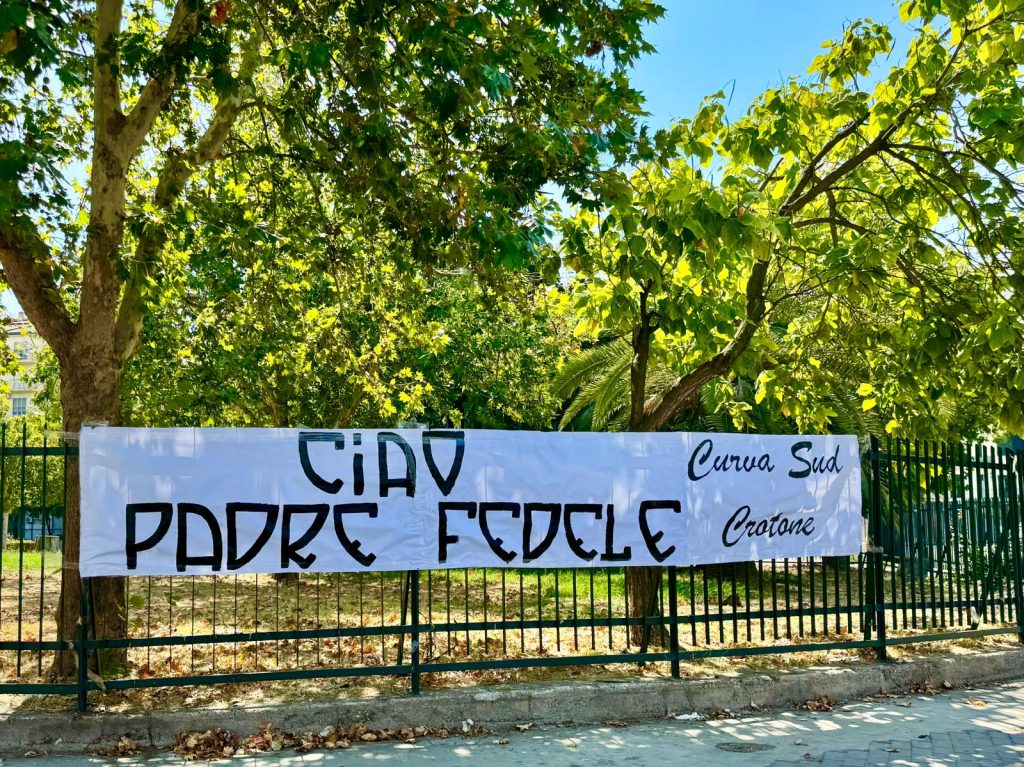 CIAO
PADRE FEDELE
Curva Sud
Crotone